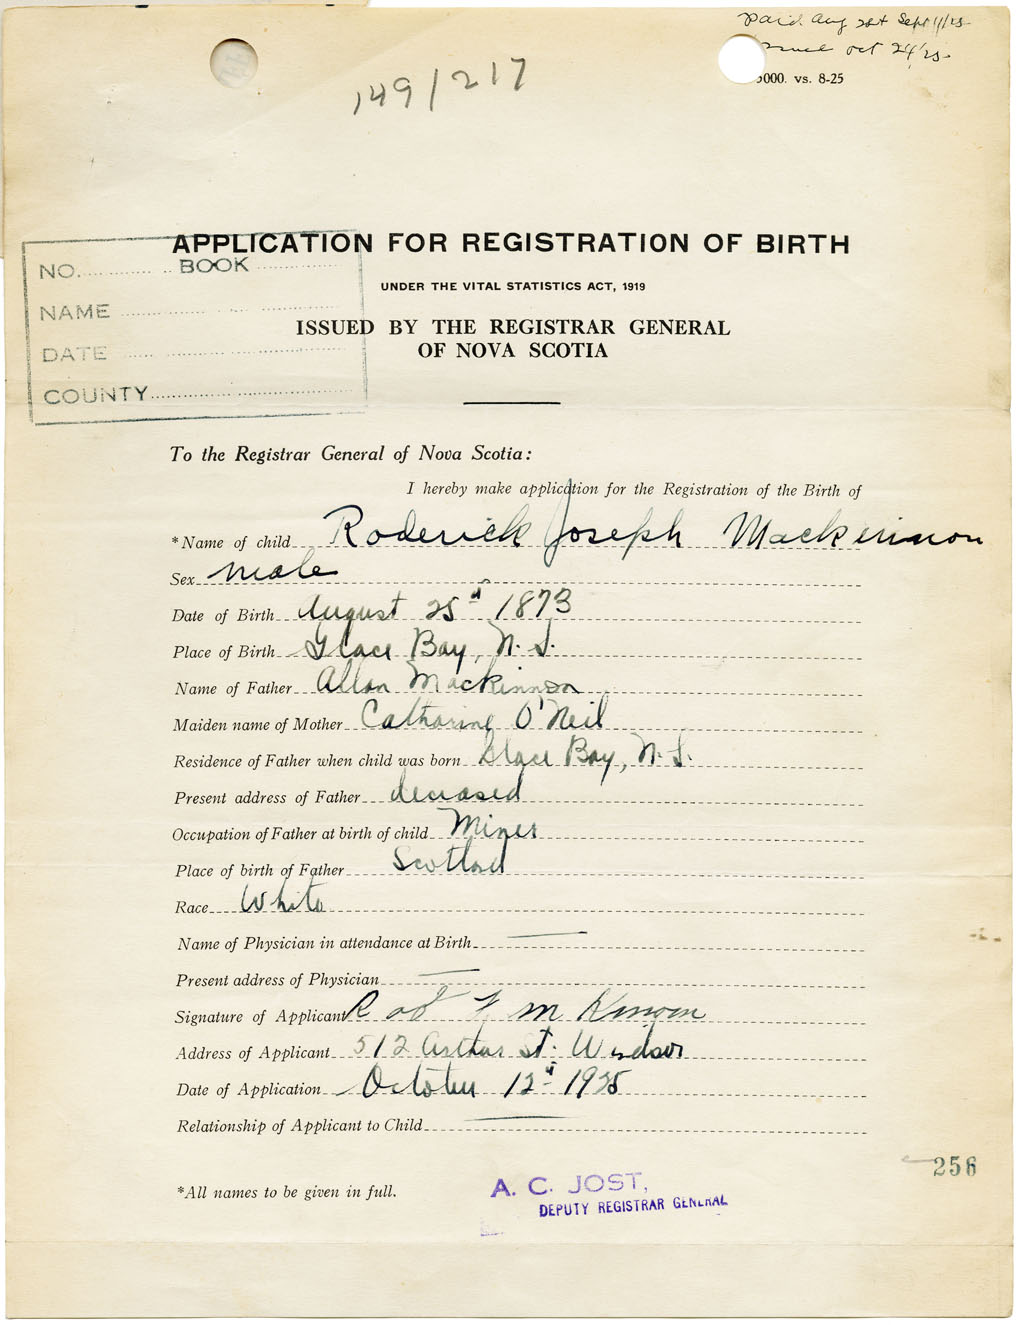 Paid Aug 28th Sept 11/25
Oct 24/25
000. vs. 8-25
149/217
APPLICATION FOR REGISTRATION OF BIRTH
NO. BOOK
UNDER THE VITAL STATISTICS ACT, 1919
NAME
ISSUED BY THE REGISTRAR GENERAL
OF NOVA SCOTIA
DATE
COUNTY
To the Registrar General of Nova Scotia:
I hereby make application for the Registration of the Birth of
*Name of child Roderick Joseph Mackinnon
Sex male
Date of Birth August 25th 1873
Place of Birth Glace Bay, N.S.
Name of Father Allan Mackinnon
Maiden name of Mother Catharine O'Neil
Residence of Father when child was born Glace Bay, N.S.
Present address of Father deceased
Occupation of Father at birth of child Miner
Place of birth of Father Scotland
Race White
Name of Physician in attendance at Birth —
Present address of Physician —
Signature of Applicant
Address of Applicant 512 Arthur St. Windsor
Date of Application October 12th 1925
Relationship of Applicant to Child —
256
*All names to be given in full.
A. C. JOST,
DEPUTY REGISTRAR GENERAL